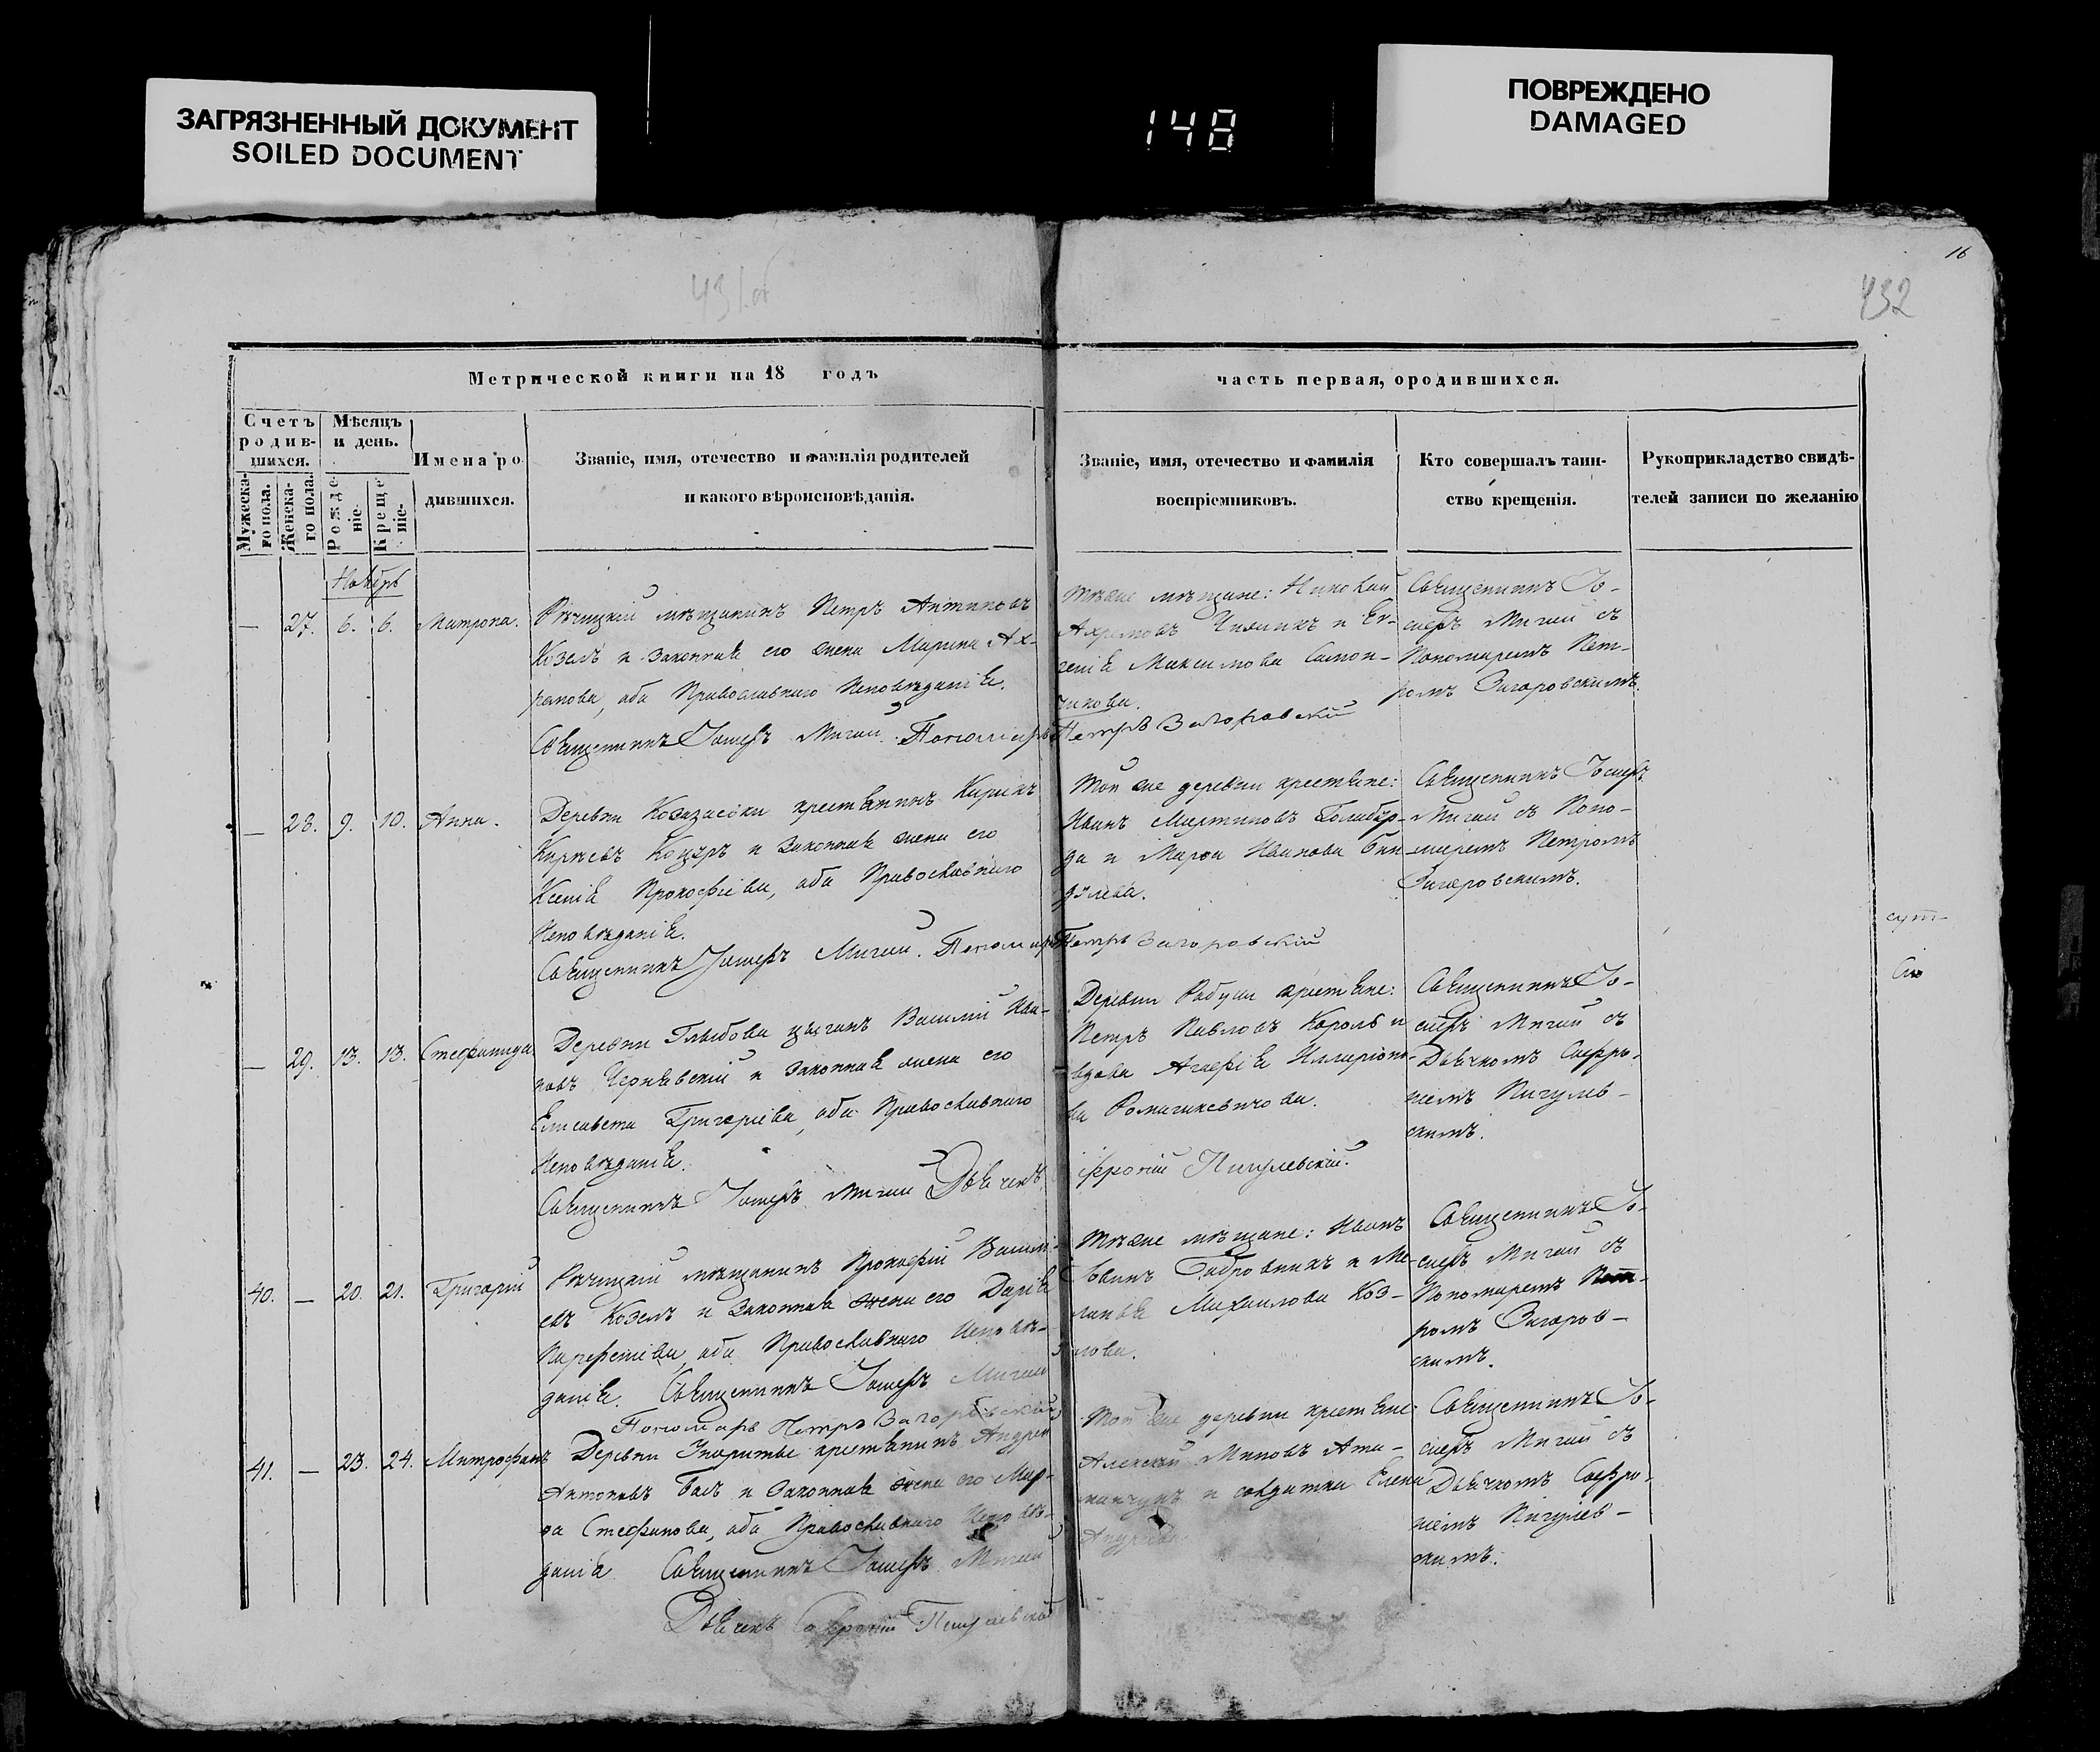 ЗАГРЯЗНЕННЫЙ ДОКУМЕНТ
SOILED DOCUMENT
148
ПОВРЕЖДЕНО
DAMAGED
16
431об
432
Метрической книги на 18 годъ
часть первая, ородившихся.
Счетъ родив-шихся.
Мужеска-го пола.
Женска-го пола.
Мѣсяцъ и день.
Рожде-ніе.
Креще-ніе.
Имена ро
дившихся.
Званіе, имя, отечество и фамилія родителей
и какого вѣроисповѣданія.
Званіе, имя, отечество и фамилія
воспріемниковъ.
Кто совершалъ таин-
ство крещенія.
Рукоприкладство свидѣ-
телей записи по желанію
Ноябрь
— 27. 6. 6. Матрона.
Рѣчицкій мѣщанинъ Петръ Антоновъ
Козелъ и законная его жена Марина Ах-
ремова, оба Православнаго Исповѣданія.
Священникъ Іосифъ Мигай. Пономарь Петръ Загоровскій
Тѣже мѣщане: Николай
Ахремовъ и Ев-
генія Максимова
Священникъ Іо-
сифъ Мигай съ
Пономаремъ Пет-
ромъ Загоровскимъ.
— 28. 9. 10. Анна.
Деревни крестьянинъ Кирикъ
и законная жена его
Ксенія Прокофіева, оба Православнаго
Исповѣданія.
Священникъ Іосифъ Мигай. Пономарь Петръ Загоровскій
Той же деревни крестьяне:
Иванъ Мартиновъ
да и Марфа Иванова
Священникъ Іосифъ
Мигай съ Поно-
маремъ Петромъ
Загоровскимъ.
— 29. 13. 13. Стефанида
Деревни Глыбова цыганъ Василій Ива-
новъ Чернявскій и законная жена его
Елисавета Григоріева, оба Православнаго
Исповѣданія.
Священникъ Іосифъ Мигай Дьячекъ фроній Пигулевскій.
Деревни крестьяне:
Петръ Павловъ Король и
вдова Агафія Илларіоно-
ва Романцкевичова.
Священникъ Іо-
сифъ Мигай съ
Дьячкомъ Софро-
ніемъ Пигулев-
скимъ.
40. — 20. 21. Григорій
Рѣчицкій мѣщанинъ Прокофій Василі-
евъ Козелъ и законная жена его Дарія
Парфеніева, оба Православнаго Исповѣ-
данія. Священникъ Іосифъ Мигай
Пономарь Петръ Загоровскій
Тѣже мѣщане: Иванъ
Бобровникъ и Ме-
ланія Михаилова Коз-
лова.
Священникъ Іо-
сифъ Мигай съ
Пономаремъ Пет-
ромъ Загоров-
скимъ.
41. — 23. 24. Митрофанъ
Деревни Унорицы крестьянинъ Андрей
Антоновъ и законная жена его Мар-
фа Стефанова, оба Православнаго Исповѣ-
данія Священникъ Іосифъ Мигай
Дьячекъ Софроній Пигулевскій
Той же деревни крестьяне:
Алексѣй Миновъ Ата-
манчукъ и солдатка Елена
Священникъ Іо-
сифъ Мигай съ
Дьячкомъ Софро-
ніемъ Пигулев-
скимъ.